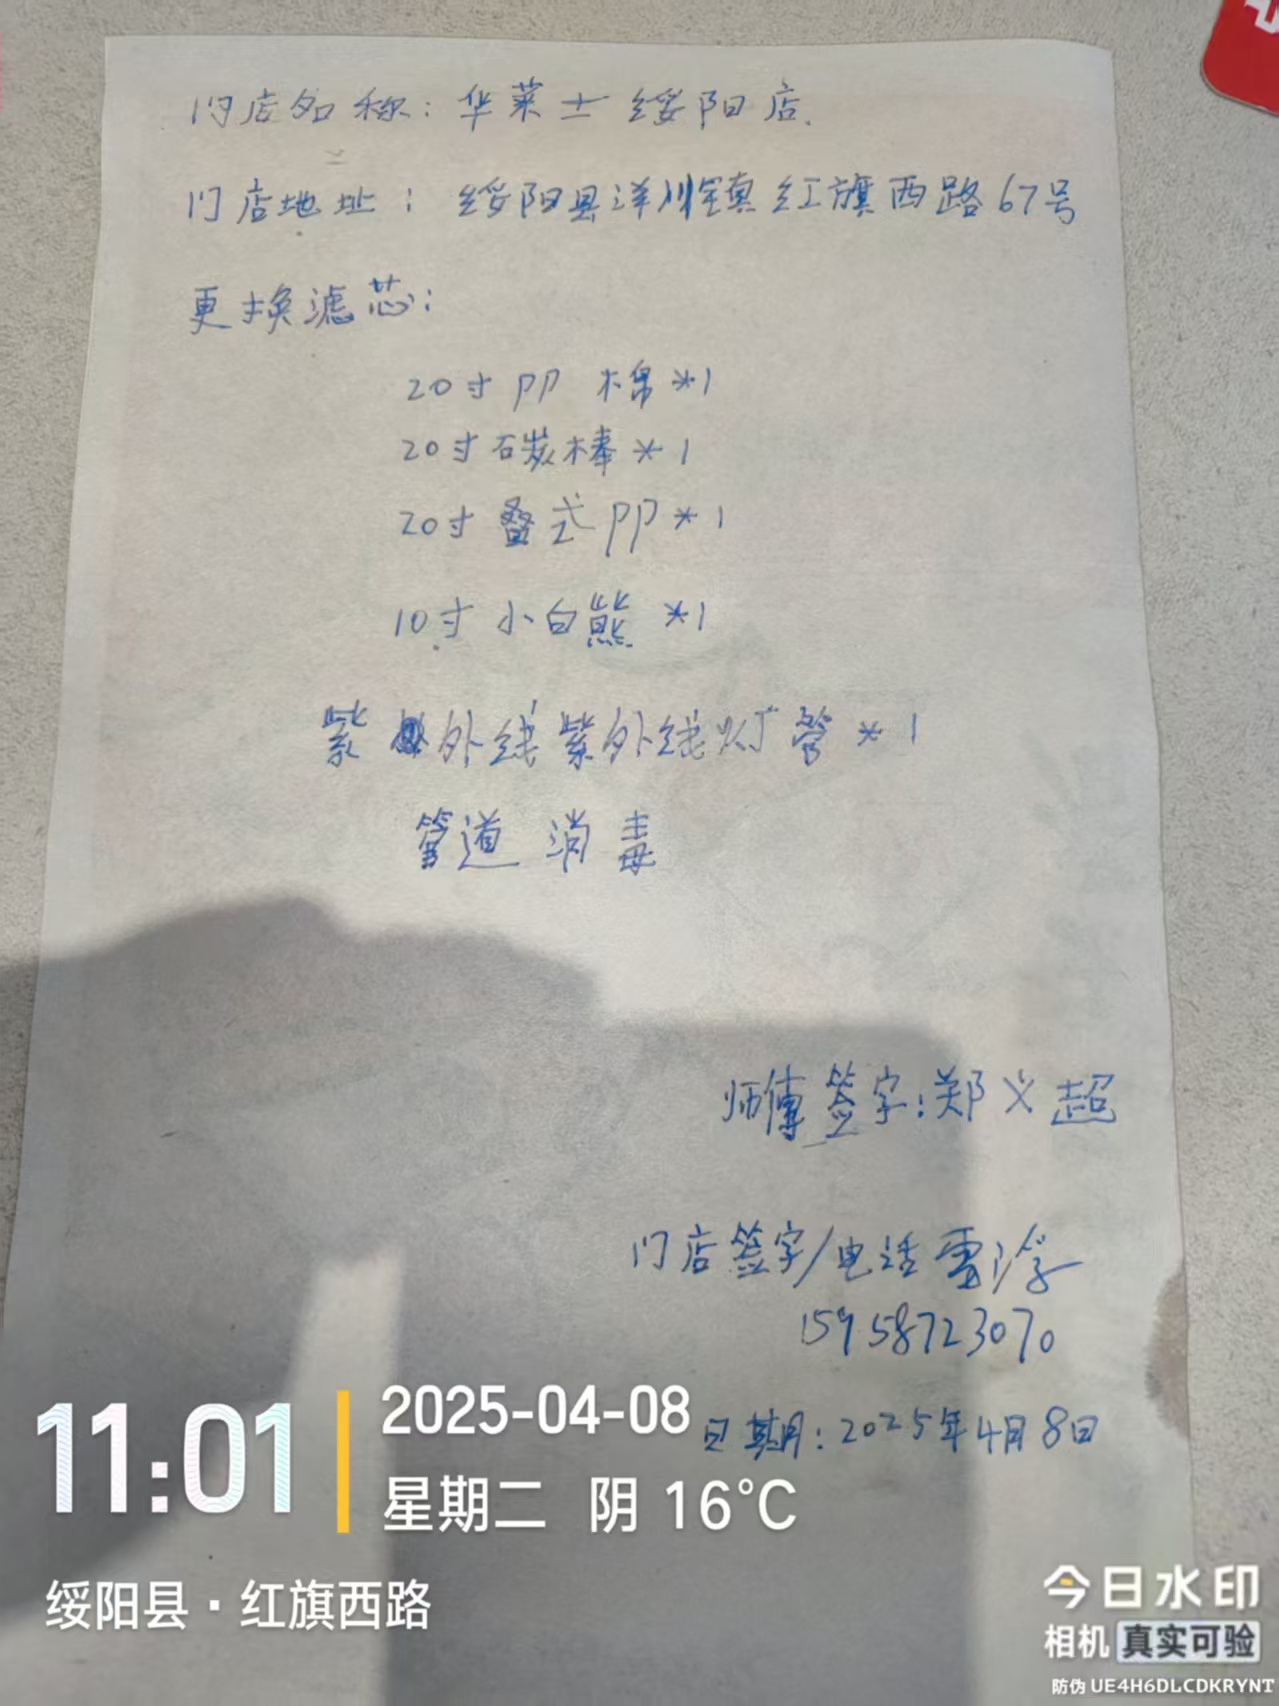 门店名称：华莱士绥阳店.
门店地址：绥阳县洋川镇红旗西路67号
更换滤芯：
20寸PP 棉*1
20寸碳棒*1
20寸叠式PP*1
10寸小白熊*1
紫外线紫外线灯管*1
管道消毒
师傅签字：郑义超
门店签字/电话
15958723070
日期：2025年4月8日
11:01
2025-04-08
星期二 阴 16°C
绥阳县·红旗西路
今日水印
相机 真实可验
防伪 UE4H6DLCDKRYNT